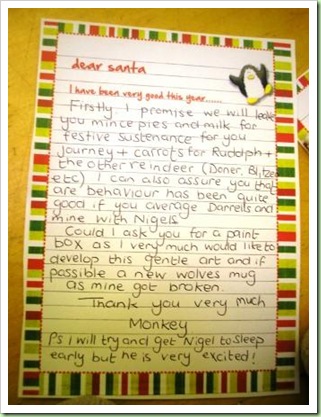 dear santa
I have been very good this year......
Firstly, I promise we will leave
you mince pies and milk for
festive sustenance for you
journey + carrots for Rudolph +
the other reindeer (Doner, Blitzen
etc) I can also assure you that
are behaviour has been quite
good if you average Darrells and
mine with Nigels.
Could I ask you for a paint
box as I very much would like to
develop this gentle art and if
possible a new wolves mug
as mine got broken.
Thank you very much
Monkey
Ps I will try and get Nigel to sleep
early but he is very excited!